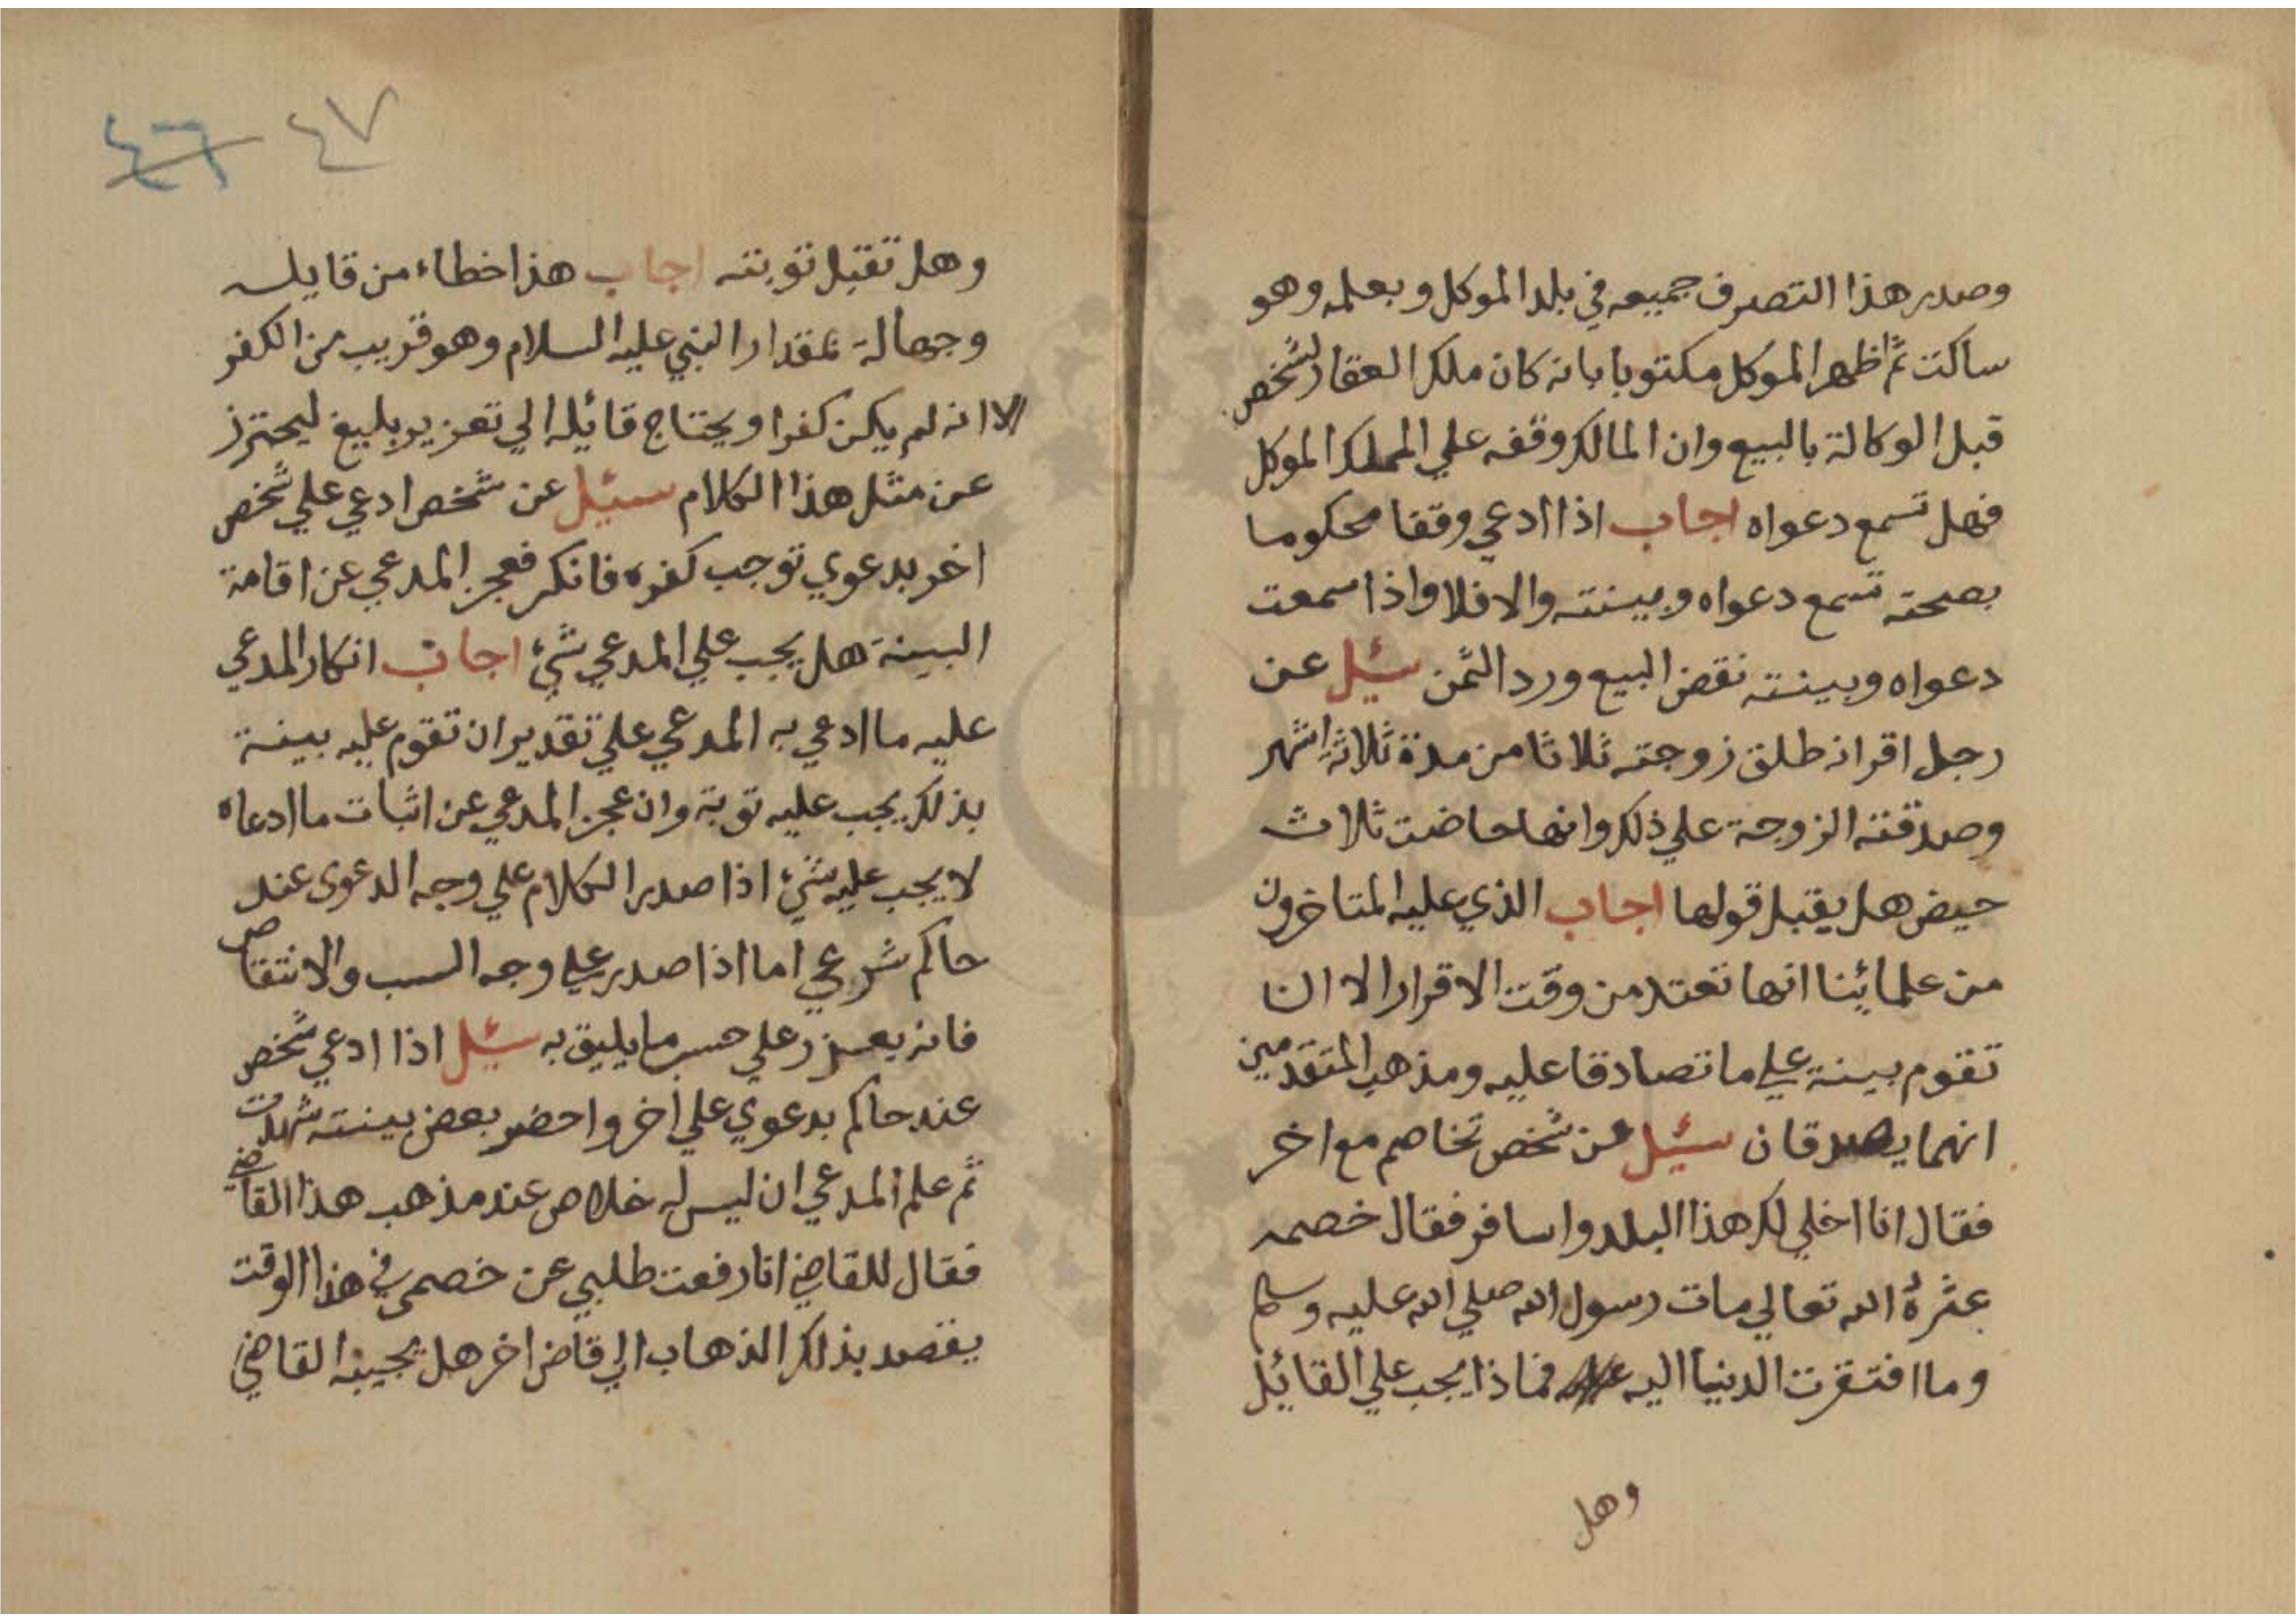 وصدر هذا التصرف جميعه في بلد الموكل وبعلمه وهو
ساكت ثم اظهر الموكل مكتوبا بانه كان ملك العقار لشخص
قبل الوكالة بالبيع وان المالك وقفه علي الموكل
فهل تسمع دعواه اجاب اذا ادعي وقفا محكوما
بصحته تسمع دعواه وبينته والا فلا واذا سمعت
دعواه وبينته نقض البيع ورد الثمن سئيل عن
رجل اقر انه طلق زوجته ثلاثا من مدة ثلاثة اشهر
وصدقته الزوجة علي ذلك وانها حاضت ثلاث
حيض هل يقبل قولها اجاب الذي عليه المتاخرون
من علمائنا انها تعتد من وقت الاقرار الا ان
تقوم بينة علي ما تصادقا عليه ومذهب المتقدمين
انهما يصدقان سئيل عن شخص تخاصم مع اخر
فقال انا اخلي لك هذا البلد واسافر فقال خصمه
الله تعالي مات رسول الله صلي الله عليه وسلم
وما افتقرت الدنيا اليه فماذا يجب علي القائل
وهل
٤٧ ٤٦
وهل تقبل توبته اجاب هذا خطاء من قايله
وجهالة بمقدار النبي عليه السلام وهو قريب من الكفر
الا انه لم يكن كفرا ويحتاج قائله الي تعزير بليغ ليحترز
عن مثل هذا الكلام سئيل عن شخص ادعي علي شخص
اخر بدعوي توجب كفره فانكر فعجز المدعي عن اقامة
البينة هل يجب علي المدعي شيء اجاب انكار المدعي
عليه ما ادعي به المدعي علي تقدير ان تقوم عليه بينة
بذلك يجب عليه توبة وان عجز المدعي عن اثبات ما ادعاه
لا يجب عليه شيء اذا صدر الكلام علي وجه الدعوى عند
حاكم شرعي اما اذا صدر علي وجه السب والانتقاص
فانه يعزر علي حسب ما يليق به سئيل اذا ادعي شخص
عند حاكم بدعوي علي اخر واحضر بعض بينته شهدت
ثم علم المدعي ان ليس له خلاص عند مذهب هذا القاضي
فقال للقاضي انا رفعت طلبي عن خصمى في هذا الوقت
يقصد بذلك الذهاب الي قاض اخر هل يجيبه القاضي